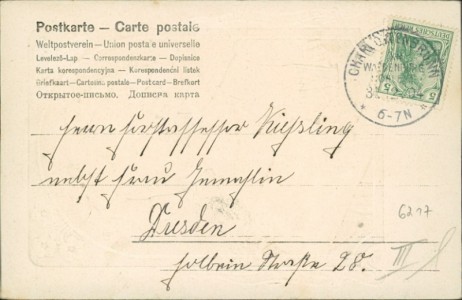 Postkarte — Carte postale
Weltpostverein — Union postale universelle
Levelező-Lap — Correspondenzkarte — Dopisnice
Karta korespondencyjna — Korespondenční lístek
Briefkaart — Cartolina postale — Postcard — Brefkort
Открытое письмо. Дописна карта
CHARLOTTENBRUNN
6-7N
Herrn Forstassessor Kießling
nebst Frau Gemahlin
Dresden
6217
Holbein Straße 28. III